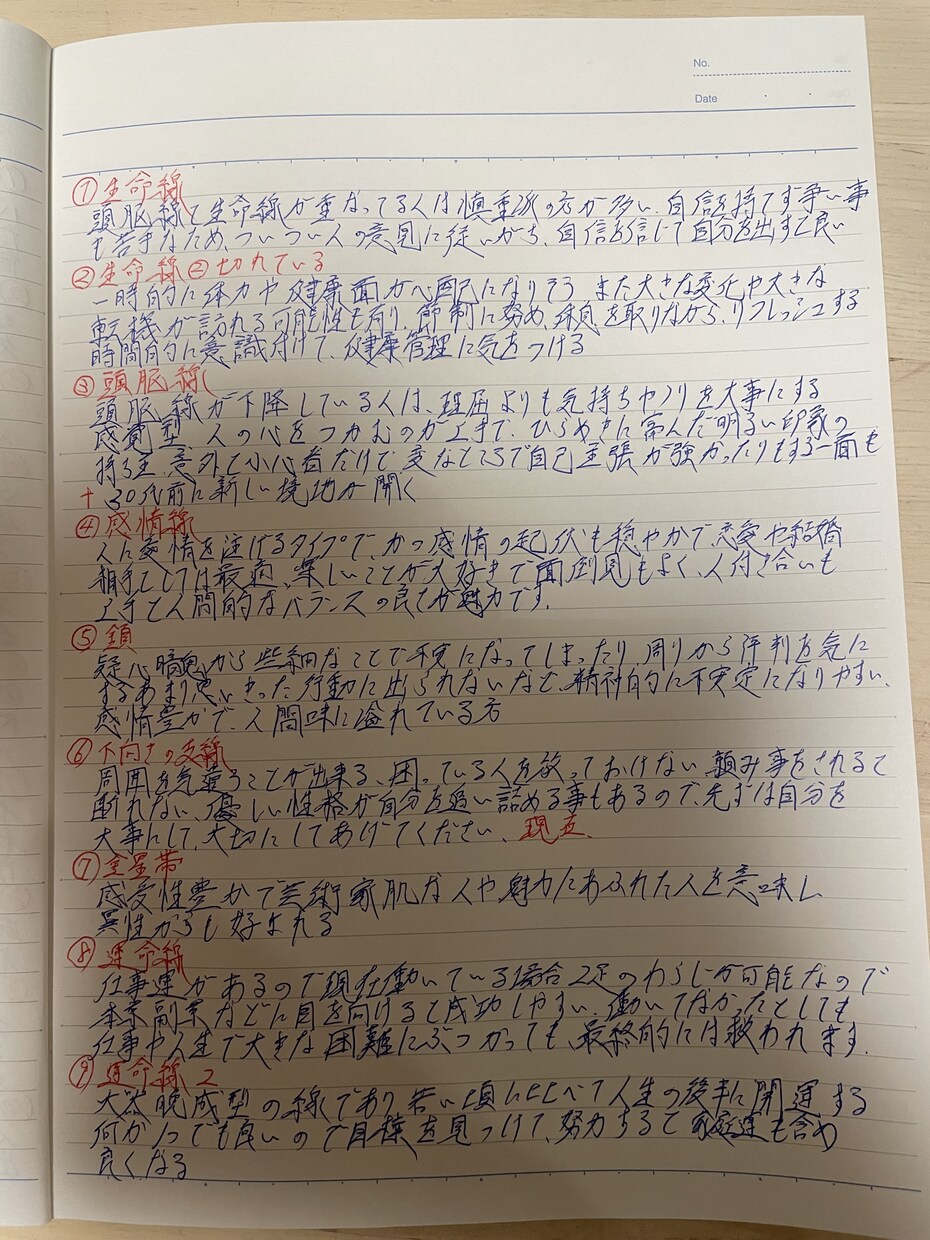 No.
Date
①生命線
頭脳線と生命線が重なってる人は慎重派の方が多い、自信を持てず争い事
も苦手なため、ついつい人の意見に従いがち、自信を信じて自分を出すと良い
②生命線② 切れている
一時的に体力や健康面が心配になりそう、また大きな変化や大きな
転機が訪れる可能性も有り、節制に努め、休息を取りながら、リフレッシュする
時間的に意識付けて、健康管理に気をつける
③頭脳線
頭脳線が下降している人は、理屈よりも気持ちやノリを大事にする
感覚型 人の心をつかむのが上手で、ひらめきに富んだ明るい印象の
持ち主、意外と小心者だけで、変なところで自己主張が強かったりもする一面も
+ 30代前に新しい境地が開く
④感情線
人に愛情を注げるタイプで、かつ感情の起伏も穏やかで、恋愛や結婚
相手としては最適、楽しいことが大好きで面倒見もよく、人付き合いも
上手と人間的なバランスの良さが魅力です。
⑤鎖
疑心暗鬼から些細なことで不安になってしまったり、周りから評判を気に
するあまり思いきった行動に出られないなど、精神的に不安定になりやすい、
感情豊かで、人間味に溢れている方
⑥下向きの支線
周囲を気遣ることが出来る、困っている人を放っておけない 頼み事をされると
断れない、優しい性格が自分を追い詰める事もあるので、先ずは自分を
大事にして、大切にしてあげてください、 現在、
⑦金星帯
感受性豊かで芸術家肌な人や魅力にあふれた人を意味し
異性からも好まれる
⑧運命線
仕事運があるので現在働いている場合 2足のわらじが可能なので
本業副業などに目を向けると成功しやすい、働いてなかったとしても
仕事や人生で大きな困難にぶつかっても、最終的には救われます。
⑨運命線 2
大器晩成型の線であり若い頃に比べて人生の後半に開運する
何か1つでも良いので目標を見つけて、努力すると家庭運も含め
良くなる